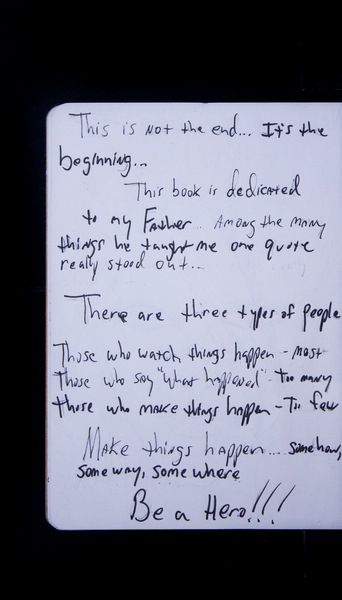 This is Not the end... It's the
beginning...
This book is dedicated
to my Father.. Among the many
things he taught me one quote
really stood out...
There are three types of people
Those who watch things happen - most
Those who say "what happened" - Too many
those who make things happen - Too few
Make things happen.... somehow,
some way, some where
Be a Hero!!!